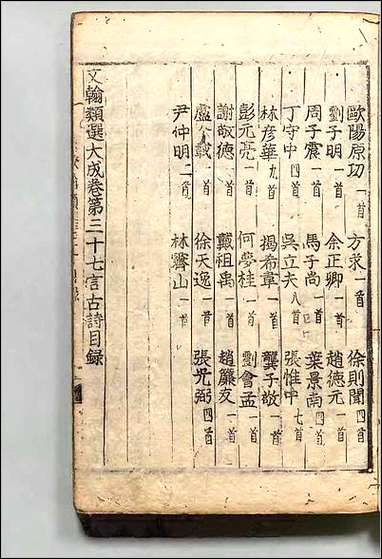 歐陽原功 一首 方求 一首 徐則聞 四首
劉子明 一首 余正卿 一首 趙德元 一首
周子震 一首 馬子尚 葉景南 四首
丁守中 四首 吳立夫 八首 張惟中 七首
林彦華 九首 揭希韋 一首 龔子敬 一首
彭元亮 一首 何夢桂 一首 劉會孟
謝敬德 一首 戴祖禹 一首 趙簾友 一首
盧公武 一首 徐天逸 一首 張光弼 四首
尹仲明 二首 林霽山
文翰類選大成卷第三十七言古詩目錄